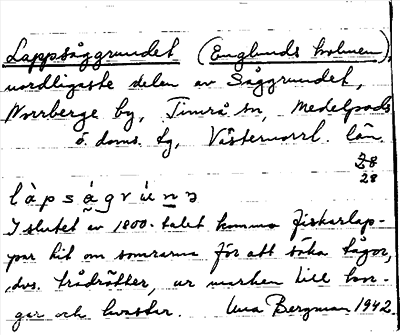 Lappsåggrundet (Englunds holmen),
nordligaste delen av Såggrundet,
Norrberge by, Timrå sn, Medelpads
ö. doms. tg, Västernorrl. län.
28
28
I slutet av 1800-talet kommo fiskarlap-
par hit om somrarna för att söka tågor,
dvs. trådrötter, ur marken till kor-
gar och kvastar. Una Bergman 1942.